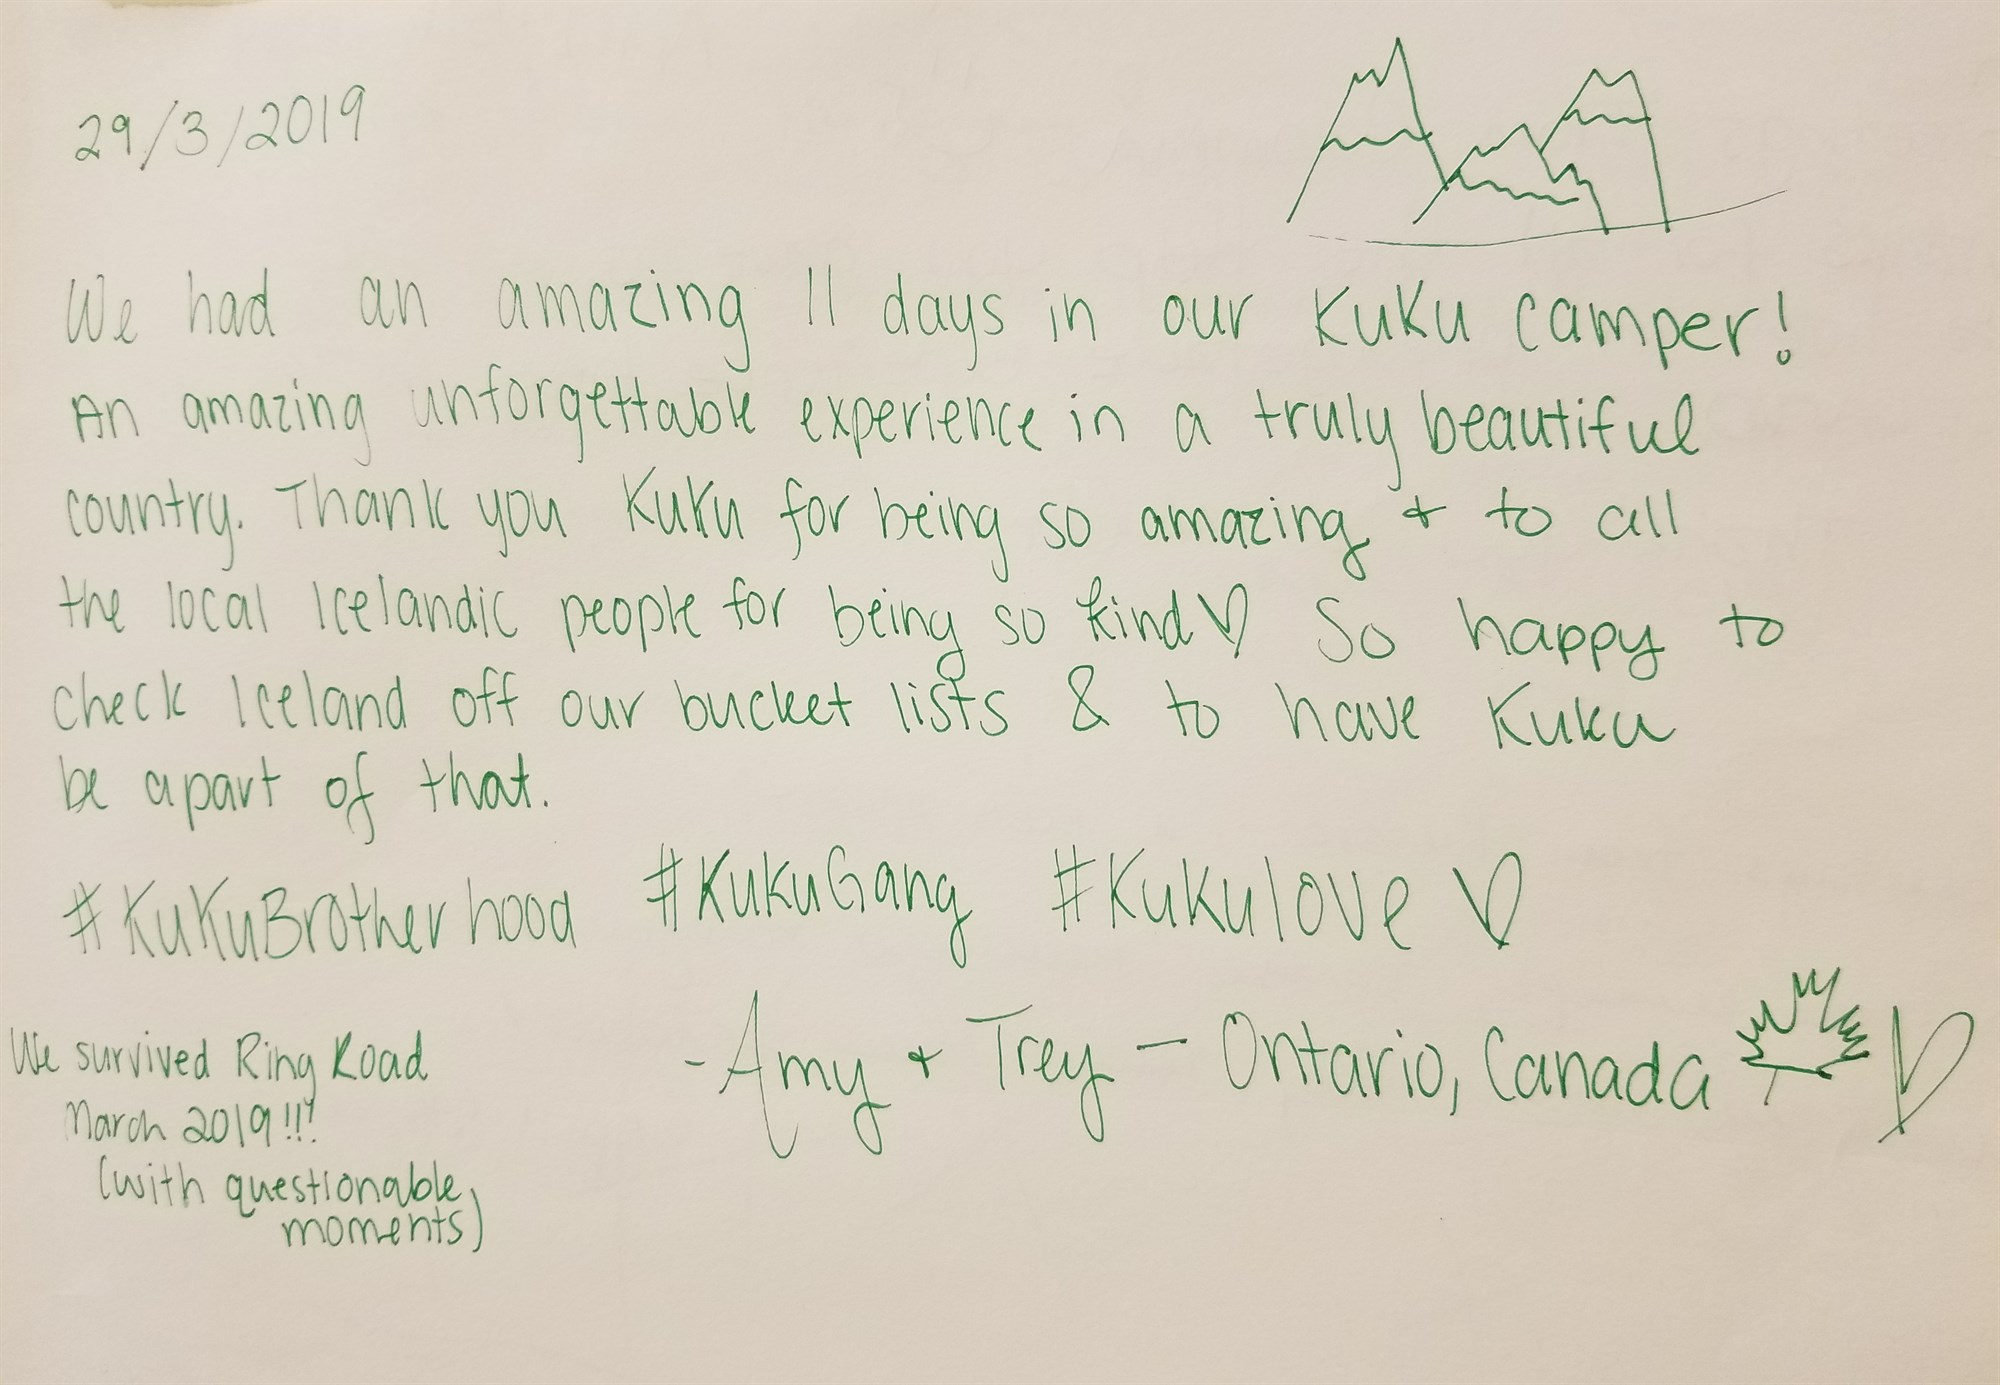 29/3/2019
We had an amazing 11 days in our KuKu camper!
An amazing unforgettable experience in a truly beautiful
country. Thank you KuKu for being so amazing + to all
the local Icelandic people for being so kind ♡ So happy to
check Iceland off our bucket lists & to have Kuku
be apart of that.
#KuKuBrotherhood #KukuGang #Kukulove ♡
- Amy + Trey - Ontario, Canada ♡
We survived Ring Road
March 2019!!!
(with questionable
moments)